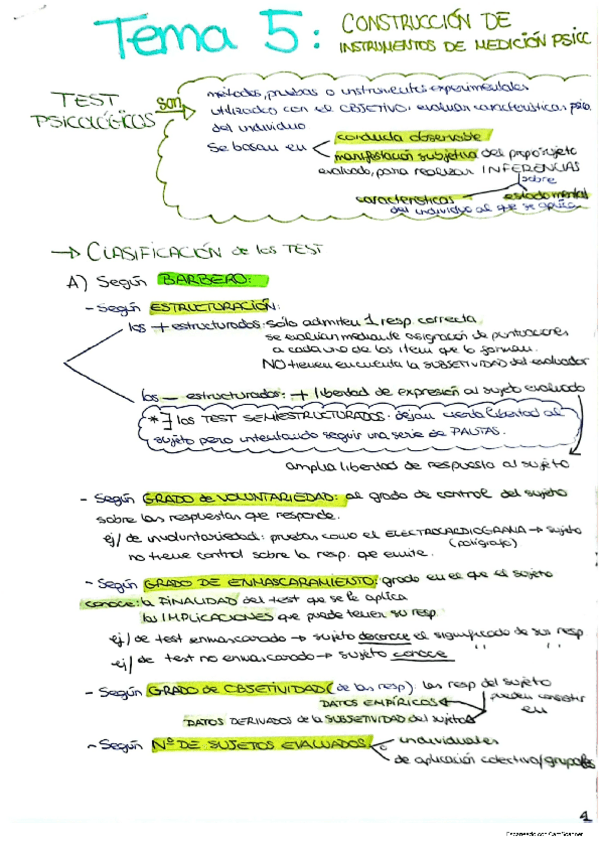 Tema 5: CONSTRUCCIÓN DE
INSTRUMENTOS DE MEDICIÓN PSICC
TEST PSICOLÓGICOS son
métodos, pruebas o instrumentos experimentales
utilizados con el OBJETIVO: evaluar características psico.
del individuo
Se basan en
conducta observable
manifestación subjetiva del propio sujeto
evaluado, para realizar INFERENCIAS
sobre
características estado mental
del individuo al que se aplica
→ CLASIFICACIÓN de los TEST
A) Según BARBERO:
- Según ESTRUCTURACIÓN:
los + estructurados: sólo admiten 1 resp. correcta.
se evalúan mediante asignación de puntuaciones
a cada uno de los item que lo forman.
NO tienen en cuenta la SUBJETIVIDAD del evaluador
los - estructurados: + libertad de expresión al sujeto evaluado
* ∃ los TEST SEMIESTRUCTURADOS. dejan cierta libertad al
sujeto pero intentando seguir una serie de PAUTAS.
amplia libertad de respuesta al sujeto
- Según GRADO de VOLUNTARIEDAD: al grado de control del sujeto
sobre las respuestas que responde.
ej/ de involuntariedad: pruebas como el ELECTROCARDIOGRAMA → sujeto
(polígrafo)
no tiene control sobre la resp. que emite.
- Según GRADO DE ENMASCARAMIENTO: grado en el que el sujeto
conoce: la FINALIDAD del test que se le aplica
las IMPLICACIONES que puede tener su resp.
ej/ de test enmascarado → sujeto desconoce el significado de sus resp
ej/ de test no enmascarado → sujeto conoce " "
- Según GRADO de OBJETIVIDAD (de las resp): las resp del sujeto
pueden consistir
en
DATOS EMPÍRICOS
DATOS DERIVADOS de la SUBJETIVIDAD del sujeto
- Según Nº DE SUJETOS EVALUADOS
individuales
de aplicación colectiva/grupales
1
Escaneado con CamScanner